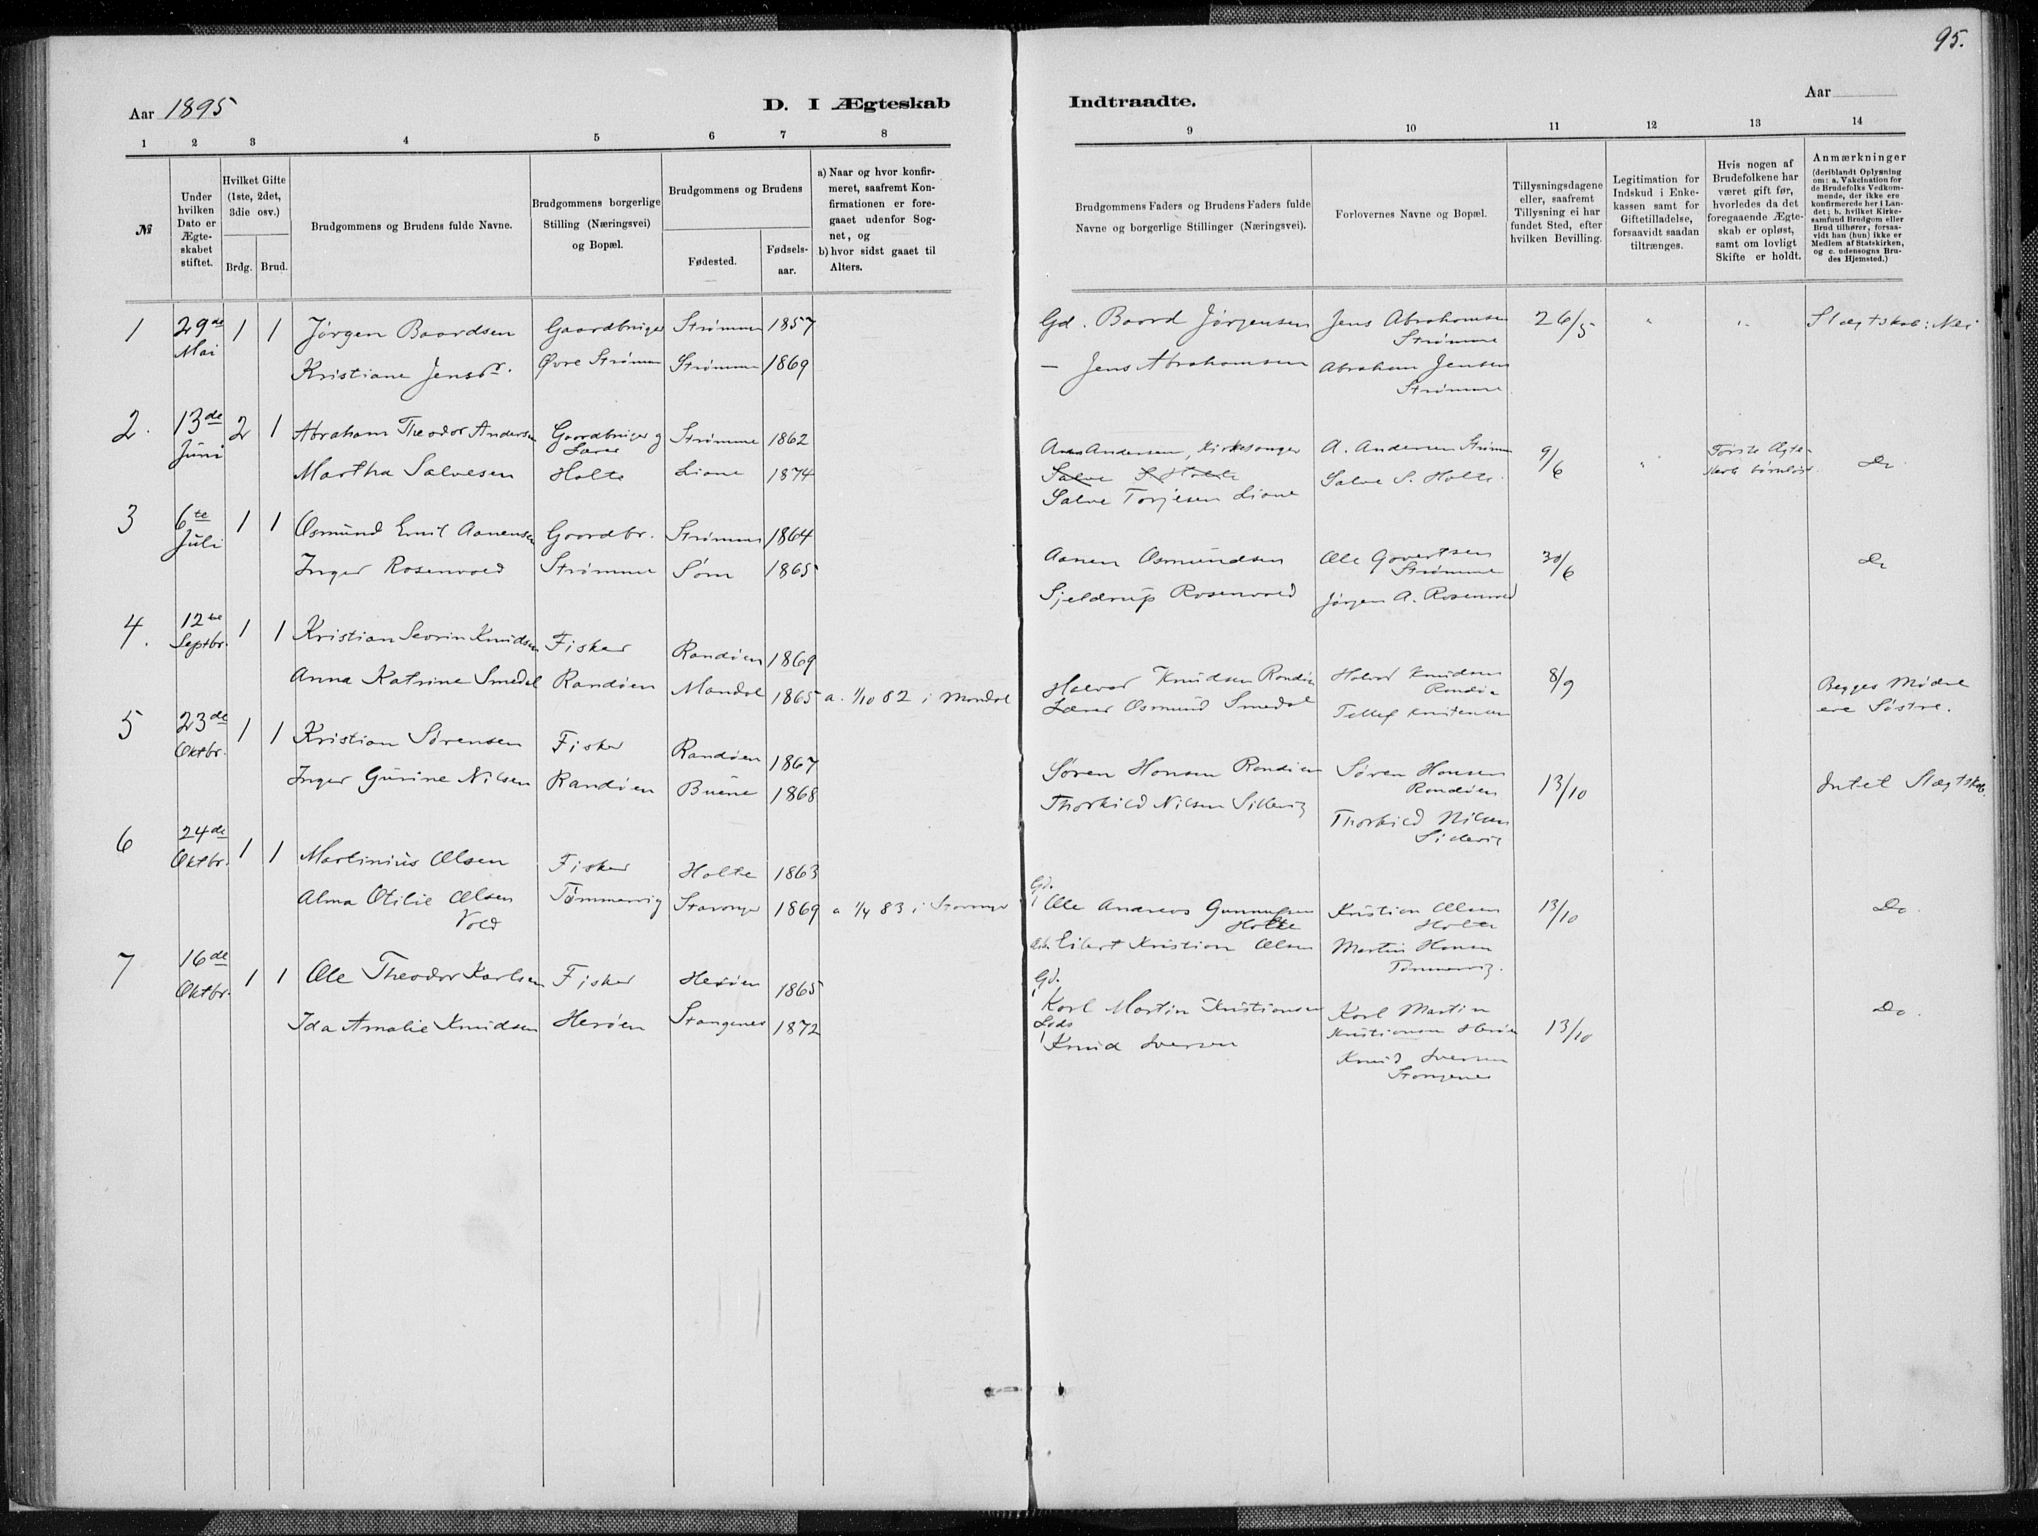 95.
Aar 1895
D. I Ægteskab
Indtraadte.
Aar
1 2 3 4 5 6 7 8
9 10 11 12 13 14
№
Under hvilken Dato er Ægteskabet stiftet.
Hvilket Gifte (1ste, 2det, 3die osv.)
Brdg. Brud.
Brudgommens og Brudens fulde Navne.
Brudgommens borgerlige Stilling (Næringsvei) og Bopæl.
Brudgommens og Brudens
Fødested.
Fødselsaar.
a) Naar og hvor konfirmeret, saafremt Konfirmationen er foregaaet udenfor Sognet, og
b) hvor sidst gaaet til Alters.
Brudgommens Faders og Brudens Faders fulde Navne og borgerlige Stillinger (Næringsvei).
Forlovernes Navne og Bopæl.
Tillysningsdagene eller, saafremt Tillysning ei har fundet Sted, efter hvilken Bevilling.
Legitimation for Indskud i Enkekassen samt for Giftetilladelse, forsaavidt saadan tiltrænges.
Hvis nogen af Brudefolkene har været gift før, hvorledes da det foregaaende Ægteskab er opløst, samt om lovligt Skifte er holdt.
Anmærkninger
(deriblandt Oplysning om: a. Vakcination for de Brudefolks Vedkommende, der ikke ere konfirmerede her i Landet; b. hvilket Kirkesamfund Brudgom eller Brud tilhører, forsaavidt han (hun) ikke er Medlem af Statskirken, og c. udensogns Brudes Hjemsted.)
1 29de Mai 1 1 Jørgen Baardsen Gaardbruger Strømme 1857
Kristiane Jensdr. Øvre Strømme Strømme 1869
Gd. Baard Jørgensen Jens Abrahamsen Strømme 26/5 " " Slægtskab: Nei
— Jens Abrahamsen Abraham Jensen Strømme
2. 13de Juni 2 1 Abraham Theodor Andersen Gaardbruger og Lærer Strømme 1862
Martha Salvesen Holte Liane 1874
Andersen, Kirkesanger A. Andersen Strømme 9/6 " Første Ægteskab børnløst. Do
Salve S. Holte Salve S. Holte.
Salve Torjesen Liane
3 6te Juli 1 1 Osmund Emil Aanensen Gaardbr. Strømme 1864
Inger Rosenvold Strømme Søm 1865
Aanen Osmundsen Ole Govertsen Strømme 30/6 Do
Sjeldrup Rosenvold Jørgen A. Rosenvold
4. 12te Septbr. 1 1 Kristian Severin Knudsen Fisker Randøen 1869
Anna Katrine Smedal Randøen Mandal 1865 a. 1/10 82 i Mandal
Halvor Knudsen Randøen Halvor Knudsen Randøen 8/9 Begges Mødre ere Søstre.
Lærer Osmund Smedal Tellef Knudsen
5 23de Oktbr. 1 1 Kristian Sørensen Fisker Randøen 1867
Inger Gurine Nilsen Randøen Buene 1868
Søren Hansen Randøen Søren Hansen Randøen 13/10 Intet Slægtskab.
Thorkild Nilsen Thorkild Nilsen
6 24de Oktbr. 1 1 Martinius Olsen Fisker Holte 1863
Alma Otilie Olsen Vold Tømmervig Stavanger 1869 a 1/4 83 i Stavanger
Gd. Ole Andreas Gunnufsen Holte Kristian Olsen Holte 13/10 Do.
Eilert Kristian Olsen Martin Hansen Tømmervig.
7 16de Oktbr. 1 1 Ole Theodor Karlsen Fisker Herøen 1865
Ida Amalie Knudsen Herøen Stangenes 1872
Gd. Karl Martin Kristiansen Karl Martin Kristiansen Herøen 13/10 Do.
Lods Knud Iversen Knud Iversen Stangenes